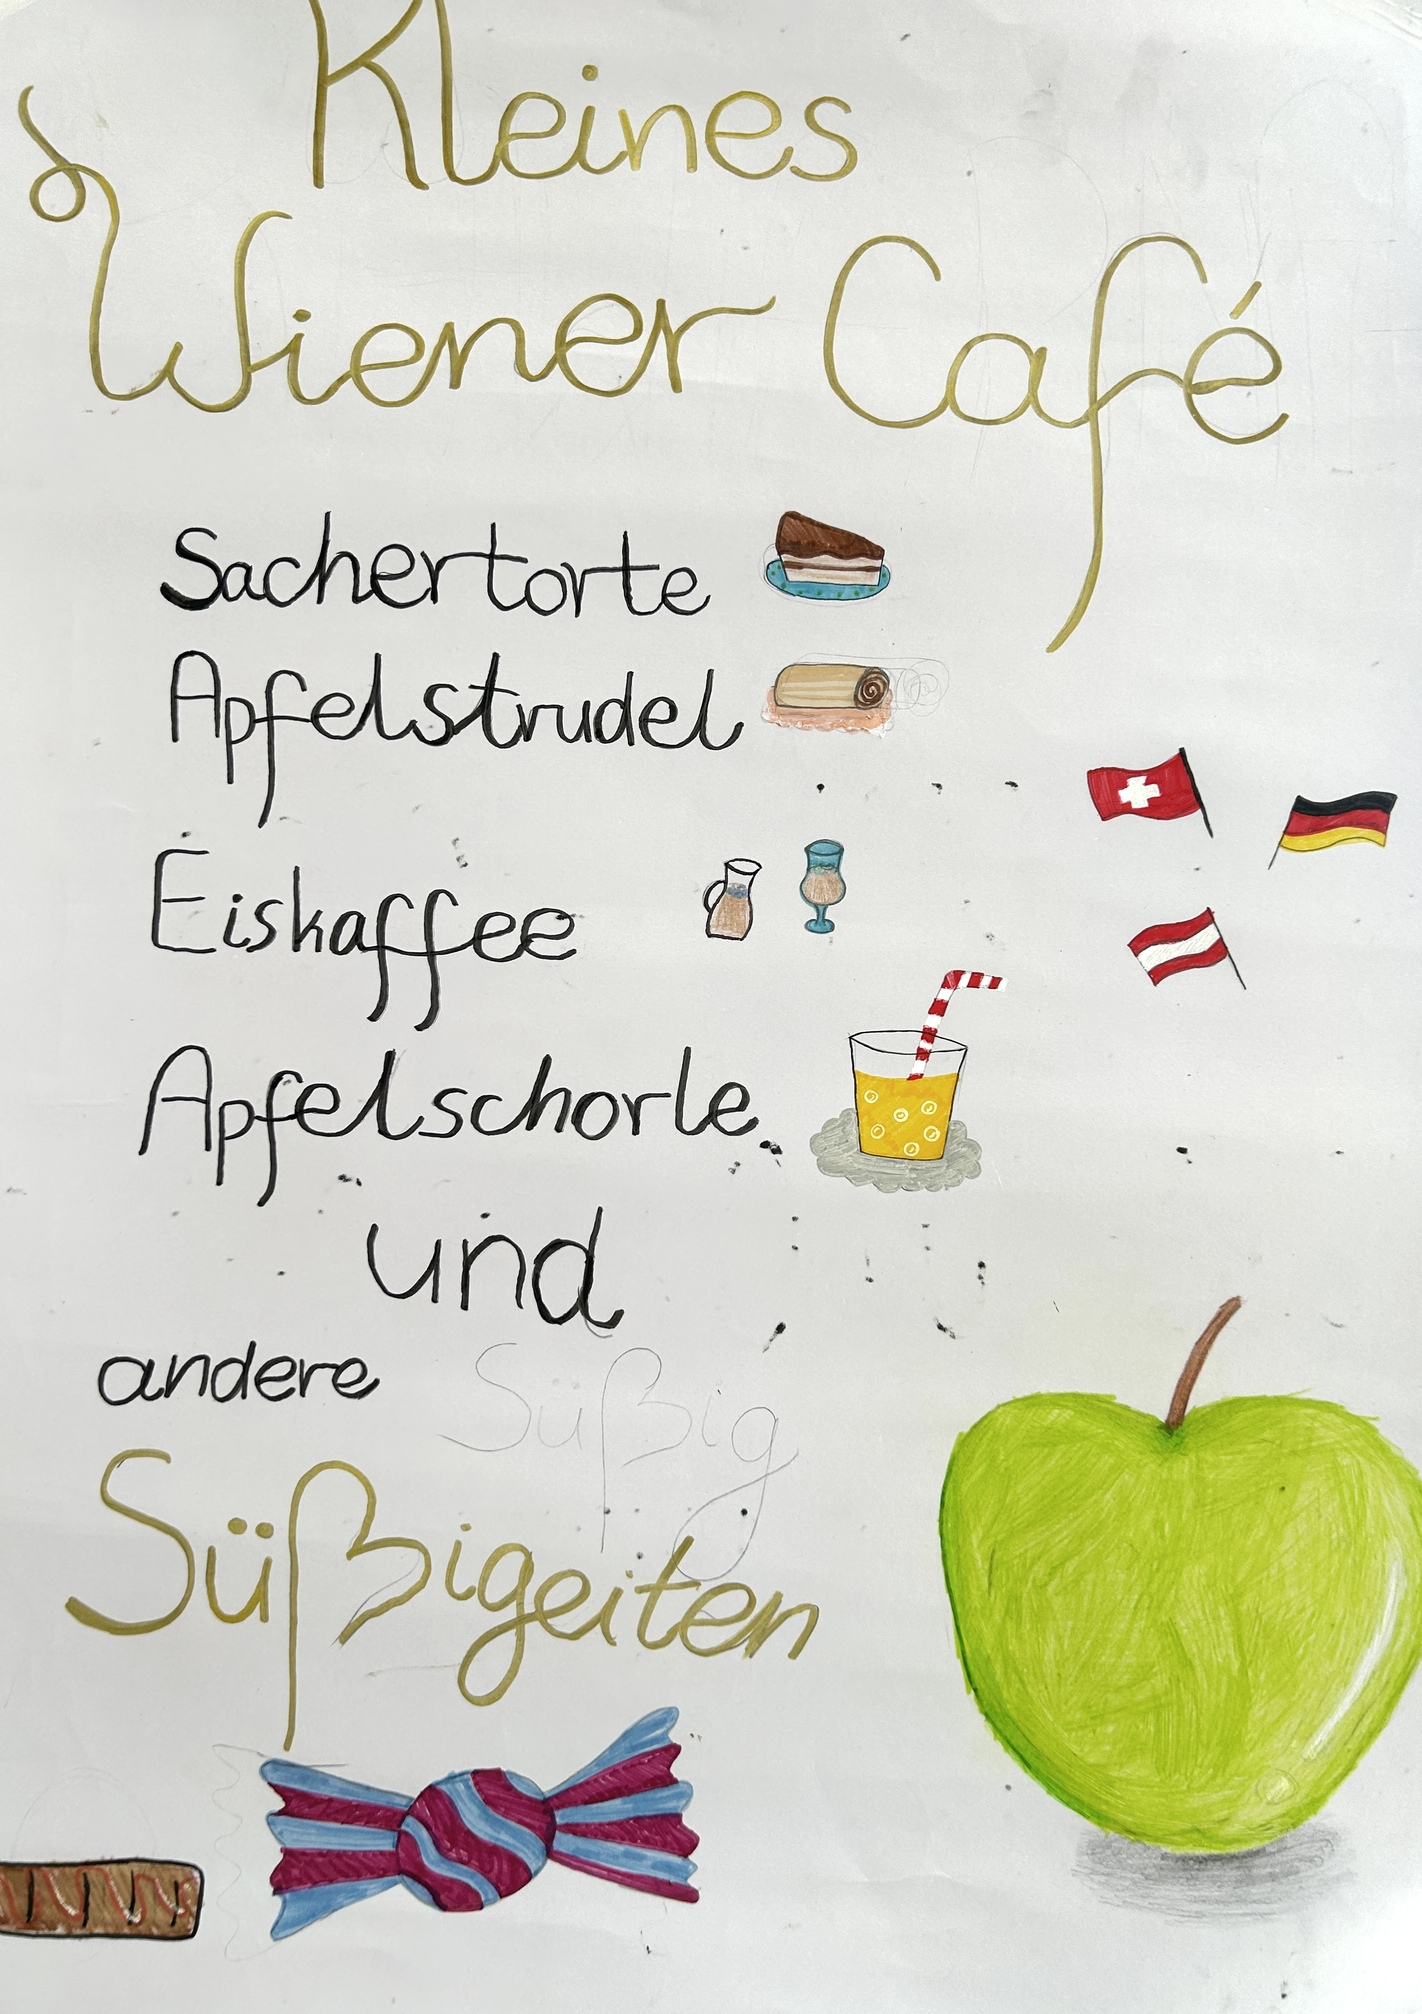 Kleines
Wiener Café
Sachertorte
Apfelstrudel
Eiskaffee
Apfelschorle
und
andere
Süßig
Süßigeiten